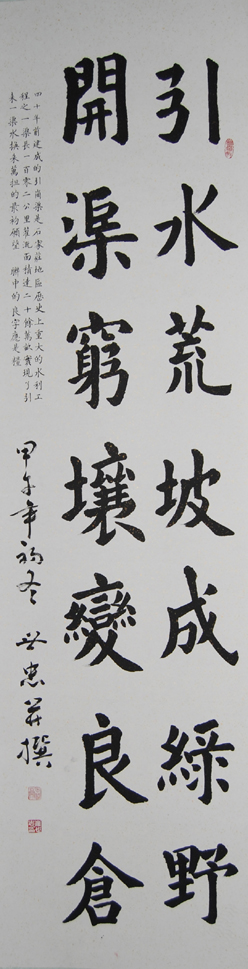 引水荒坡成綠野
開渠窮壤變良倉
四十年前建成的引崗渠是石家莊地區歷史上重大的水利工
程之一渠長一百零二公里面積達二十餘萬畝實現了引
來一渠水換來萬担的願望 聯中的良字應是糧
甲午年初冬 忠并撰